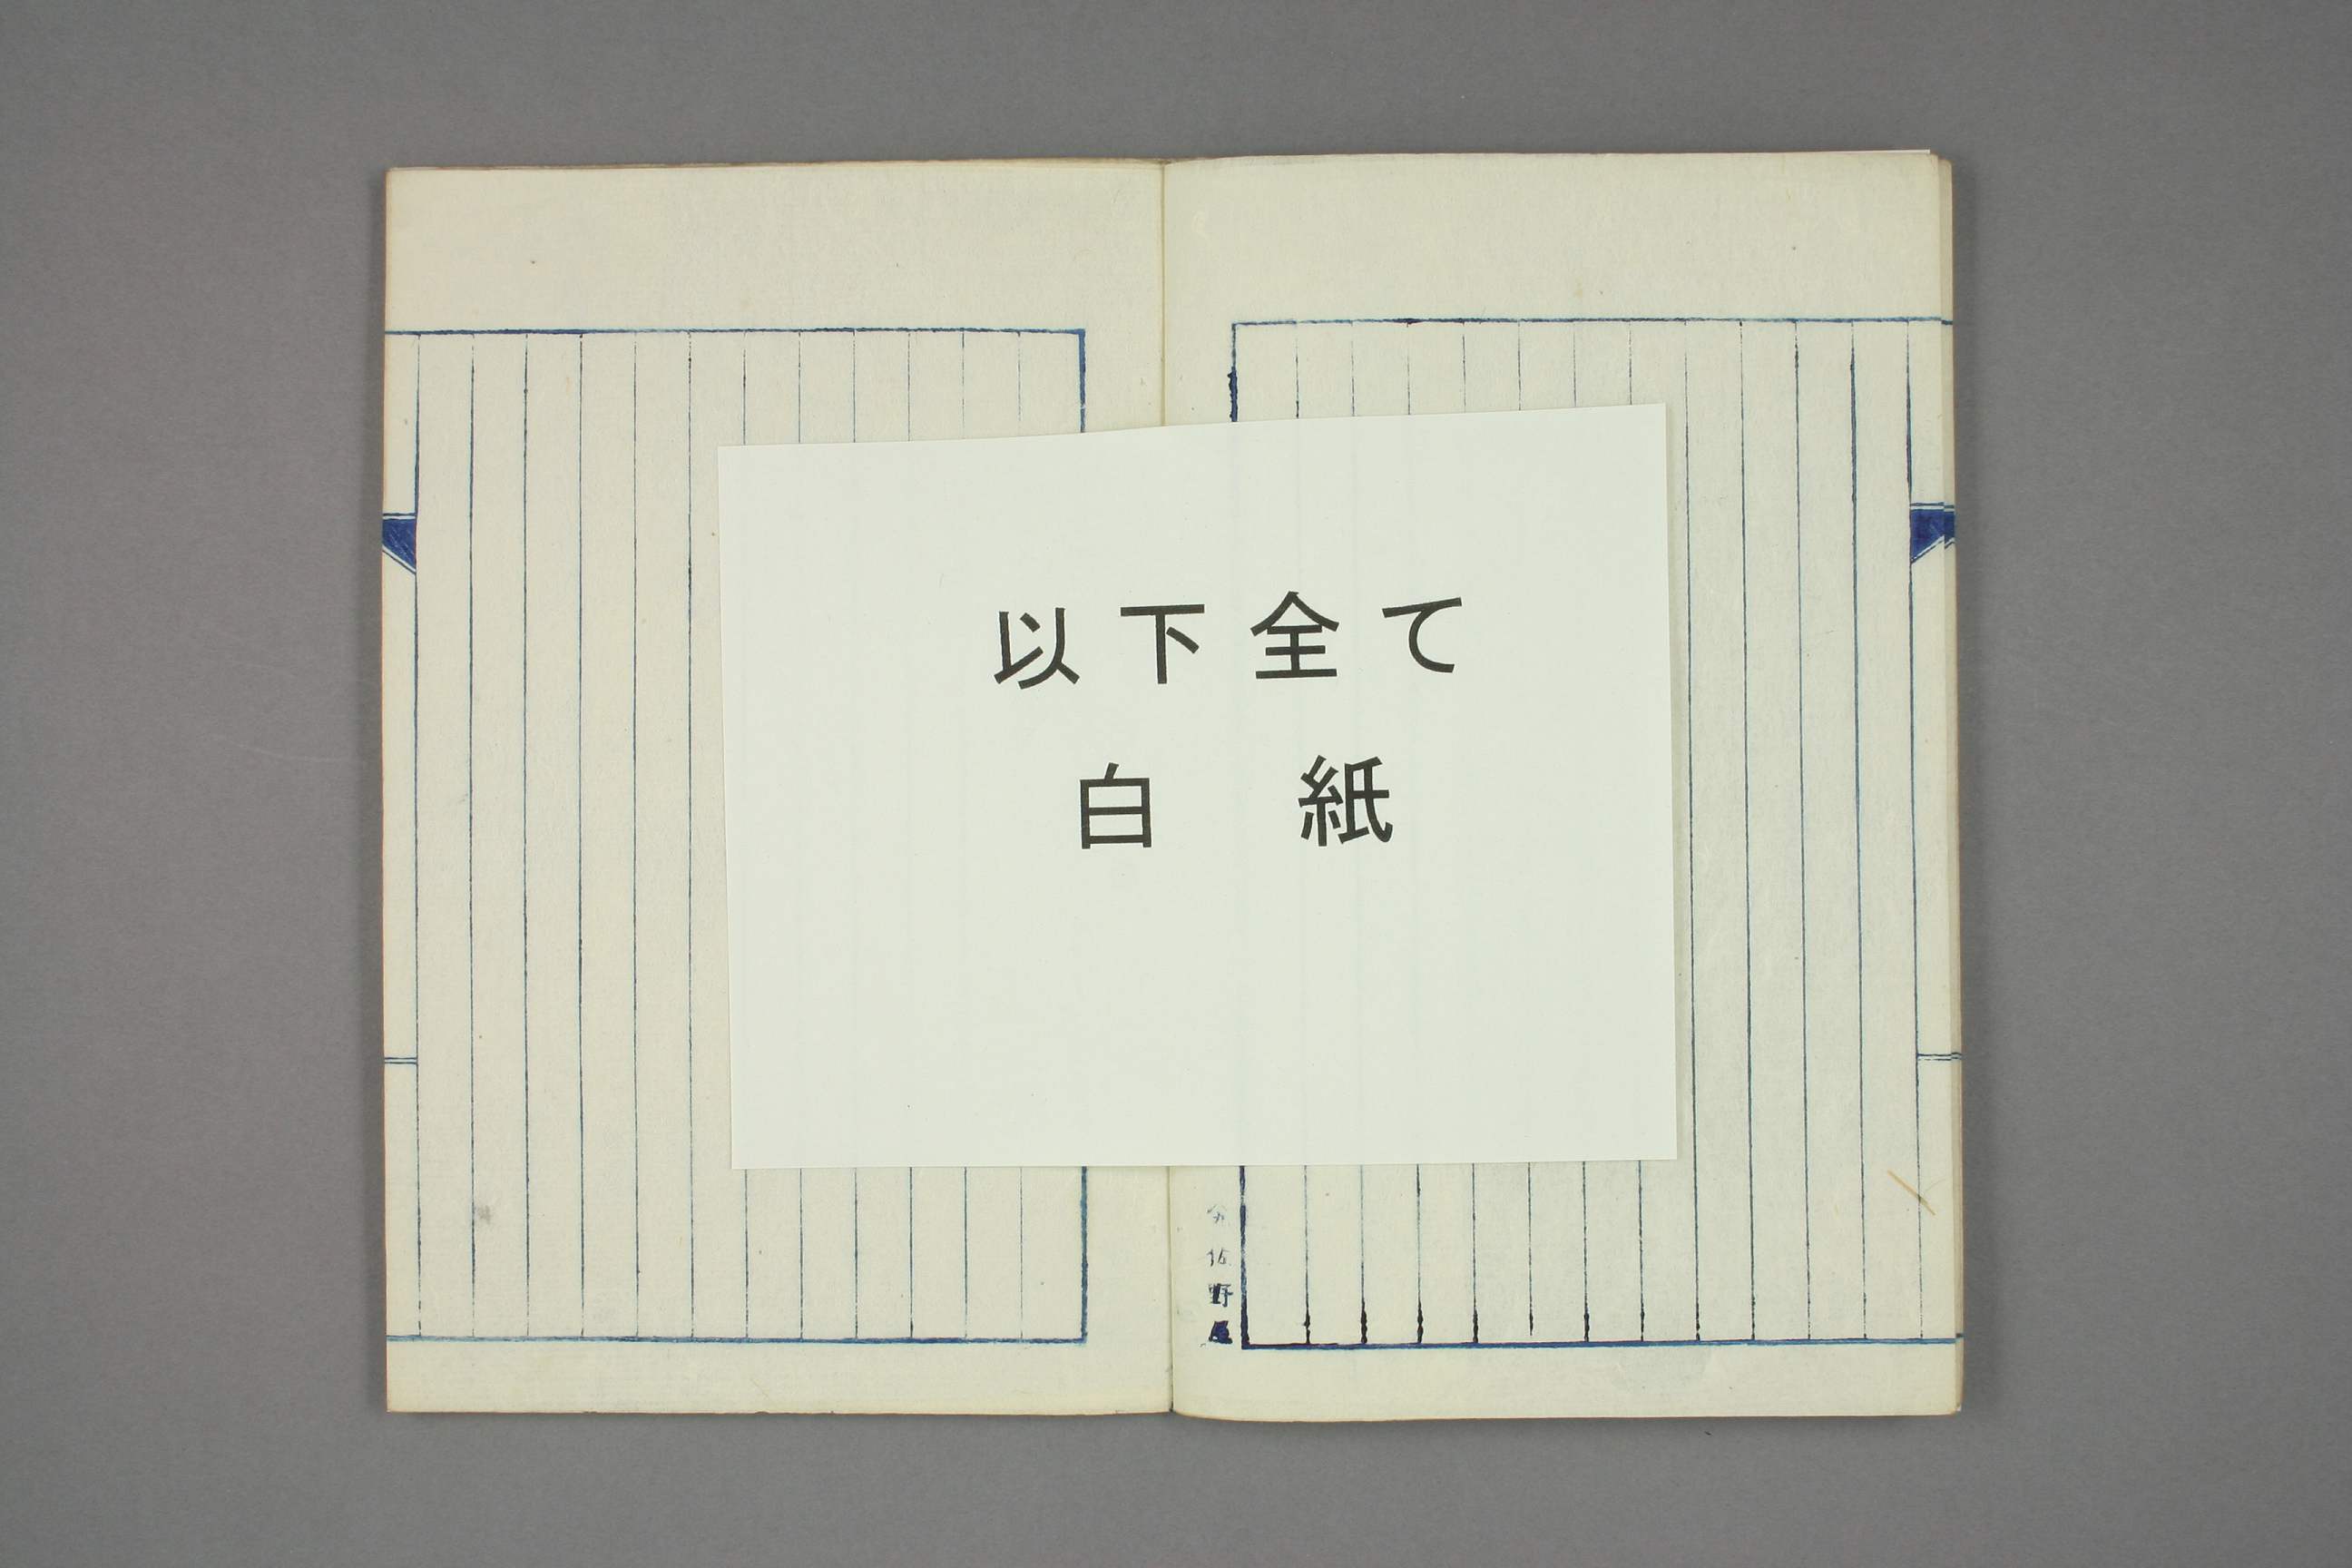 以下全て
白 紙
佐野屋